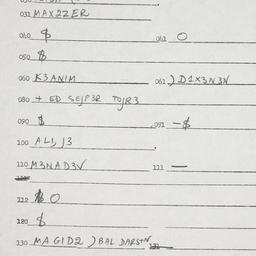 031 MAX2ZER
040 $ 041 O
050 $
060 K3ANIM 061 ) D1X3N3N
080 + ED SEJP3R TOJR3
090 $ 091 -$
100 ALI, J3
110 M3NAD3V 111 —
112 O
120 $
130 MAGID2 ) BAL DARS+N